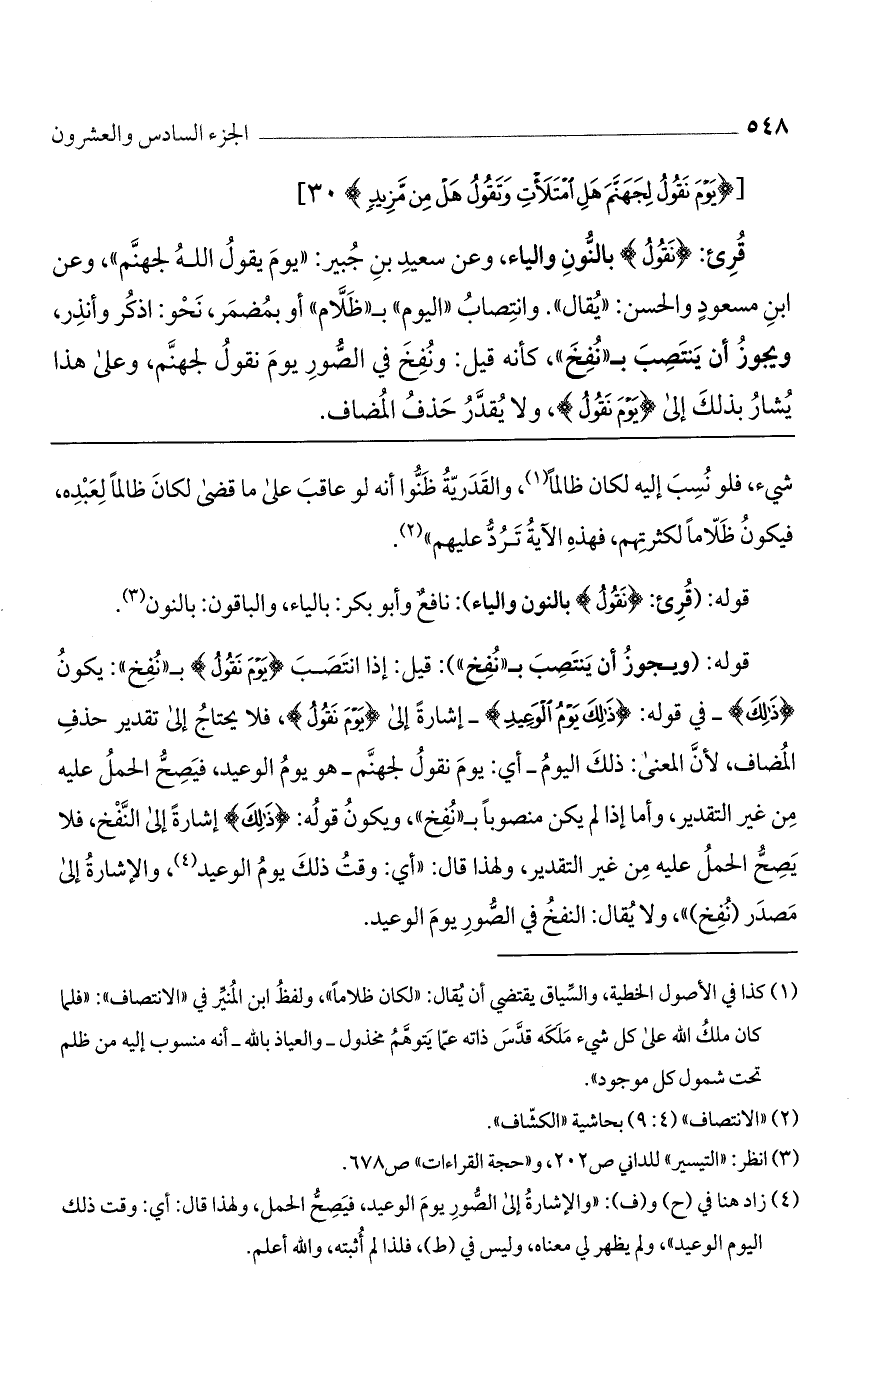 ٥٤٨ الجزء السادس والعشرون
[﴿يَوْمَ نَقُولُ لِجَهَنَّمَ هَلِ ٱمْتَلَأْتِ وَتَقُولُ هَلْ مِن مَّزِيدٍ﴾ ٣٠]
قُرِئ: ﴿نَقُولُ﴾ بالنُّونِ والياء، وعن سعيدِ بنِ جُبير: «يومَ يقولُ اللهُ لجهنَّم»، وعن
ابنِ مسعودٍ والحسن: «يُقال». وانتِصابُ «اليوم» بـ«ظَلَّام» أو بمُضمَر، نَحْو: اذكُر وأنذِر،
ويجوزُ أن يَنتَصِبَ بـ«نُفِخَ»، كأنه قيل: ونُفِخَ في الصُّورِ يومَ نقولُ لجهنَّم، وعلىٰ هذا
يُشارُ بذلكَ إلىٰ ﴿يَوْمَ نَقُولُ﴾، ولا يُقدَّرُ حَذفُ المُضاف.
شيء، فلو نُسِبَ إليه لكان ظالماً(١)، والقَدَريّةُ ظَنُّوا أنه لو عاقبَ علىٰ ما قضىٰ لكانَ ظالماً لِعَبْدِه،
فيكونُ ظَلّاماً لكثرتِهم، فهذهِ الآيةُ تَـرُدُّ عليهم»(٢).
قوله: (قُرِئ: ﴿نَقُولُ﴾ بالنون والياء): نافعٌ وأبو بكر: بالياء، والباقون: بالنون(٣).
قوله: (ويـجوزُ أن يَنتَصِبَ بـ«نُفِخ»): قيل: إذا انتَصَـبَ ﴿يَوْمَ نَقُولُ﴾ بـ«نُفِخ»: يكونُ
﴿ذَٰلِكَ﴾ ـ في قوله: ﴿ذَٰلِكَ يَوْمُ ٱلْوَعِيدِ﴾ ـ إشارةً إلىٰ ﴿يَوْمَ نَقُولُ﴾، فلا يحتاجُ إلىٰ تقدير حذفِ
المُضاف، لأنَّ المعنىٰ: ذلكَ اليومُ ـ أي: يومَ نقولُ لجهنَّم ـ هو يومُ الوعيد، فيَصِحُّ الحملُ عليه
مِن غير التقدير، وأما إذا لم يكن منصوباً بـ«نُفِخ»، ويكونُ قولُه: ﴿ذَٰلِكَ﴾ إشارةً إلىٰ النَّفْخ، فلا
يَصِحُّ الحملُ عليه مِن غير التقدير، ولهذا قال: «أي: وقتُ ذلكَ يومُ الوعيد(٤)، والإشارةُ إلىٰ
مَصدَر (نُفِخ)»، ولا يُقال: النفخُ في الصُّورِ يومَ الوعيد.
(١) كذا في الأصول الخطية، والسِّياق يقتضي أن يُقال: «لكان ظلاماً»، ولفظُ ابن المُنيِّر في «الانتصاف»: «فلما
كان ملكُ الله علىٰ كل شيء مَلَكَه قدَّسَ ذاته عمّا يَتوهَّمُ مخذول ـ والعياذ بالله ـ أنه منسوب إليه من ظلم
تحت شمول كل موجود».
(٢) «الانتصاف» (٤: ٩) بحاشية «الكشّاف».
(٣) انظر: «التيسير» للداني ص٢٠٢، و«حجة القراءات» ص٦٧٨.
(٤) زاد هنا في (ح) و(ف): «والإشارةُ إلىٰ الصُّورِ يومَ الوعيد، فيَصِحُّ الحمل، ولهذا قال: أي: وقت ذلك
اليوم الوعيد»، ولم يظهر لي معناه، وليس في (ط)، فلذا لم أُثبته، والله أعلم.